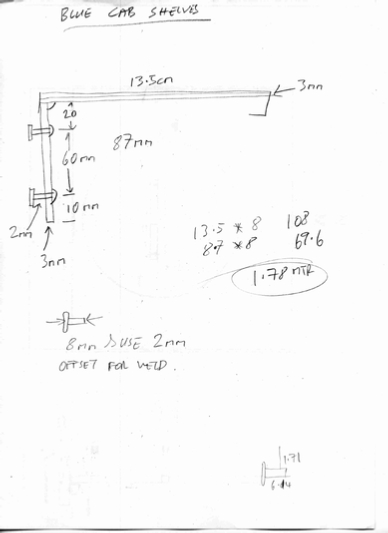 BLUE CAB SHELVES
13.5cm
3mm
20
60mm
87mm
10mm
2mm
3mm
13.5 * 8 108
8.7 * 8 69.6
1.78 MTR
8mm USE 2mm
OFFSET FOR WELD.
1.71